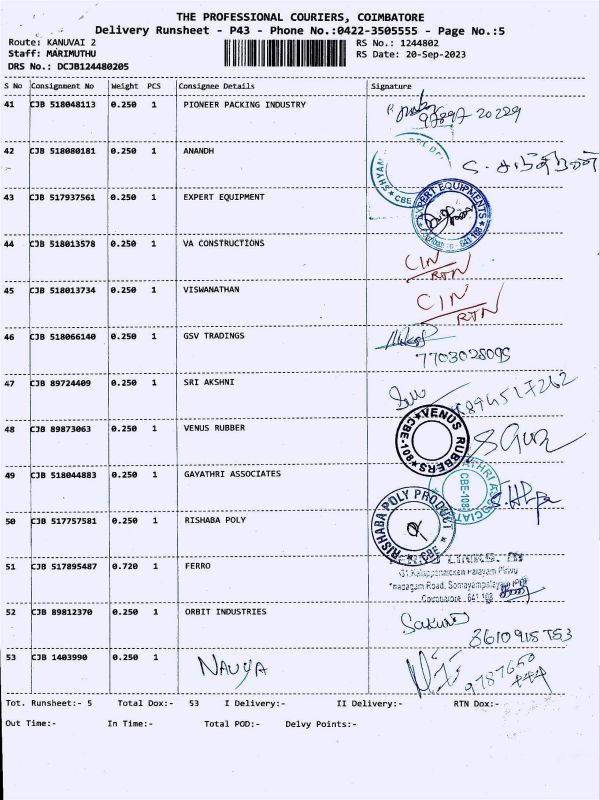 THE PROFESSIONAL COURIERS, COIMBATORE
Delivery Runsheet - P43 - Phone No.:0422-3505555 - Page No.:5
Route: KANUVAI 2 RS No.: 1244802
Staff: MARIMUTHU RS Date: 20-Sep-2023
DRS No.: DCJB124480205
S No Consignment No Weight PCS Consignee Details Signature
41 CJB 518048113 0.250 1 PIONEER PACKING INDUSTRY
97897 20229
42 CJB 518080181 0.250 1 ANANDH
SHYAM CBE
43 CJB 517937561 0.250 1 EXPERT EQUIPMENT
EXPERT EQUIPMENTS
44 CJB 518013578 0.250 1 VA CONSTRUCTIONS
CIN
RTN
45 CJB 518013734 0.250 1 VISWANATHAN
CIN
RTN
46 CJB 518066140 0.250 1 GSV TRADINGS
7703028095
47 CJB 89724409 0.250 1 SRI AKSHNI
48 CJB 89873063 0.250 1 VENUS RUBBER
VENUS RUBBERS
49 CJB 518044883 0.250 1 GAYATHRI ASSOCIATES
CBE-108
50 CJB 517757581 0.250 1 RISHABA POLY
RISHABA POLY PRODUCT CBE
51 CJB 517895487 0.720 1 FERRO
Road, Somayampalayam
Coimbatore - 641 108
52 CJB 89812370 0.250 1 ORBIT INDUSTRIES
53 CJB 1403990 0.250 1 NAVYA
Tot. Runsheet:- 5 Total Dox:- 53 I Delivery:- II Delivery:- RTN Dox:-
Out Time:- In Time:- Total POD:- Delvy Points:-